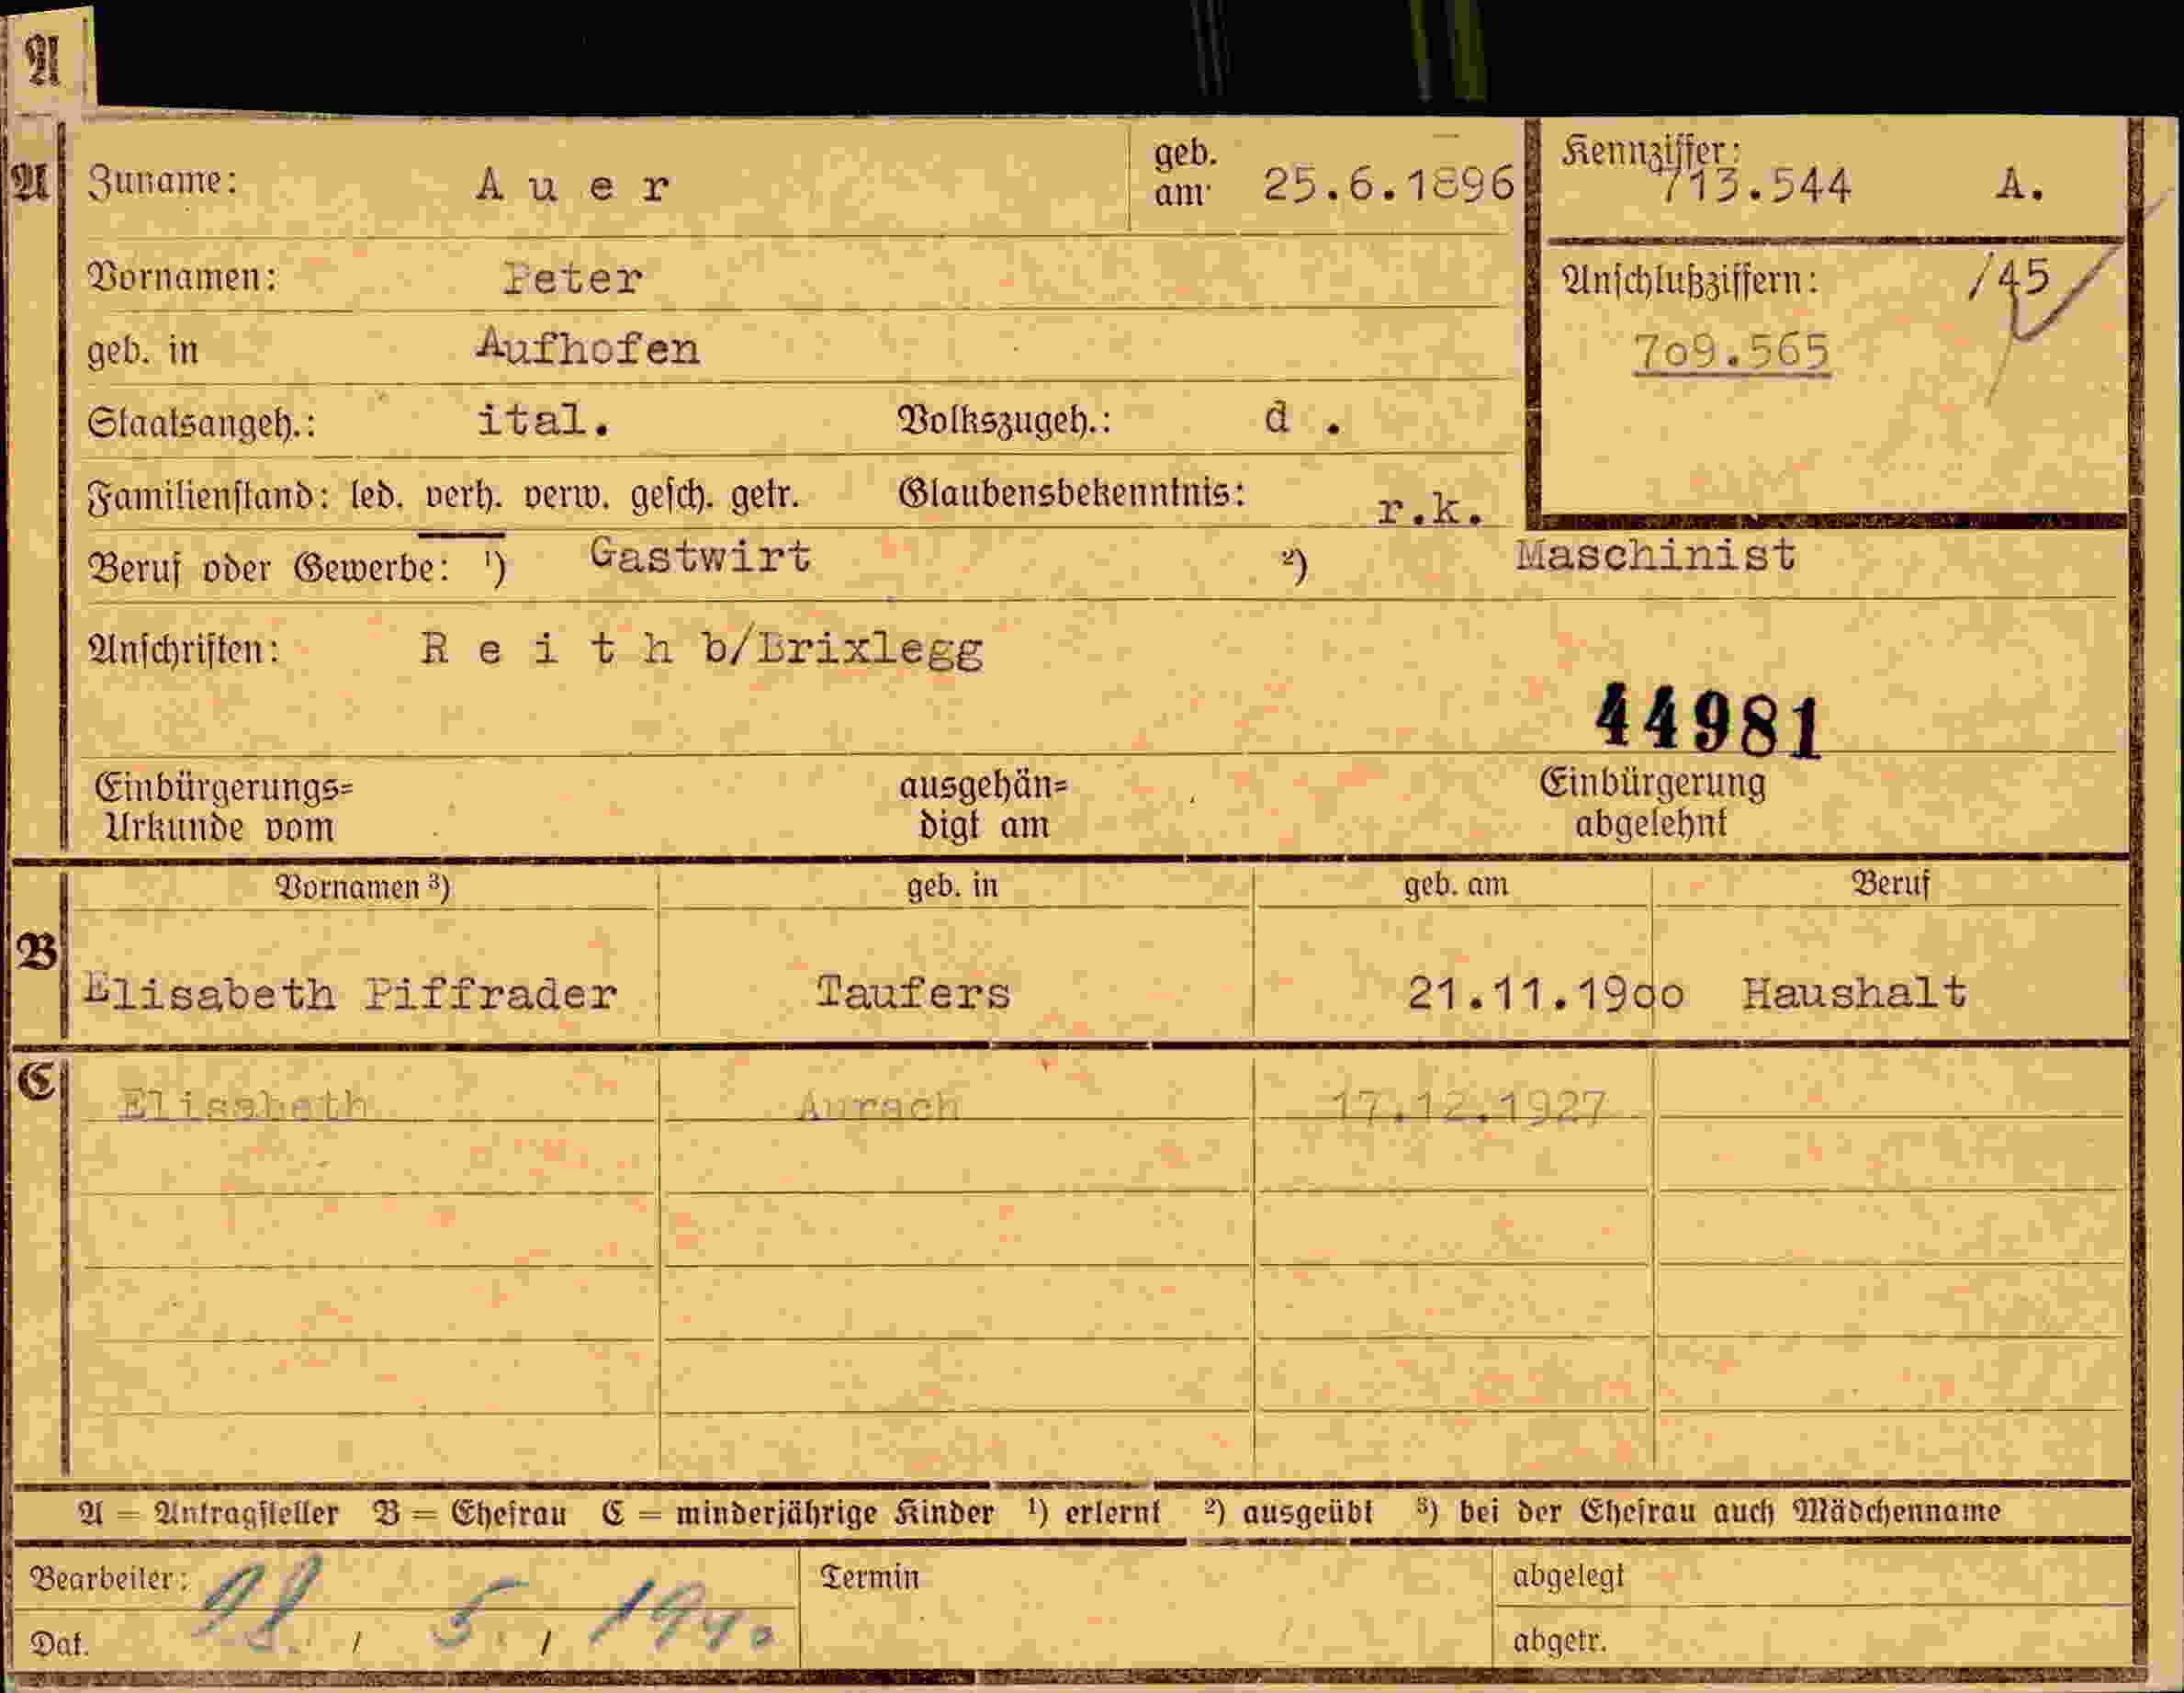 A
A Zuname: Auer geb. am 25.6.1896 Kennziffer: 713.544 A.
Vornamen: Peter Anschlußziffern: /45
geb. in Aufhofen 709.565
Staatsangeh.: ital. Volkszugeh.: d .
Familienstand: led. verh. verw. gesch. getr. Glaubensbekenntnis: r.k.
Beruf oder Gewerbe: ¹) Gastwirt ²) Maschinist
Anschriften: R e i t h b/Brixlegg
44981
Einbürgerungs= ausgehän= Einbürgerung
Urkunde vom digt am abgelehnt
Vornamen ³) geb. in geb. am Beruf
B Elisabeth Piffrader Taufers 21.11.1900 Haushalt
C Elisabeth Aurach 17.12.1927
A = Antragsteller B = Ehefrau C = minderjährige Kinder ¹) erlernt ²) ausgeübt ³) bei der Ehefrau auch Mädchenname
Bearbeiter: Termin abgelegt
Dat. / 5 / 1940 abgetr.